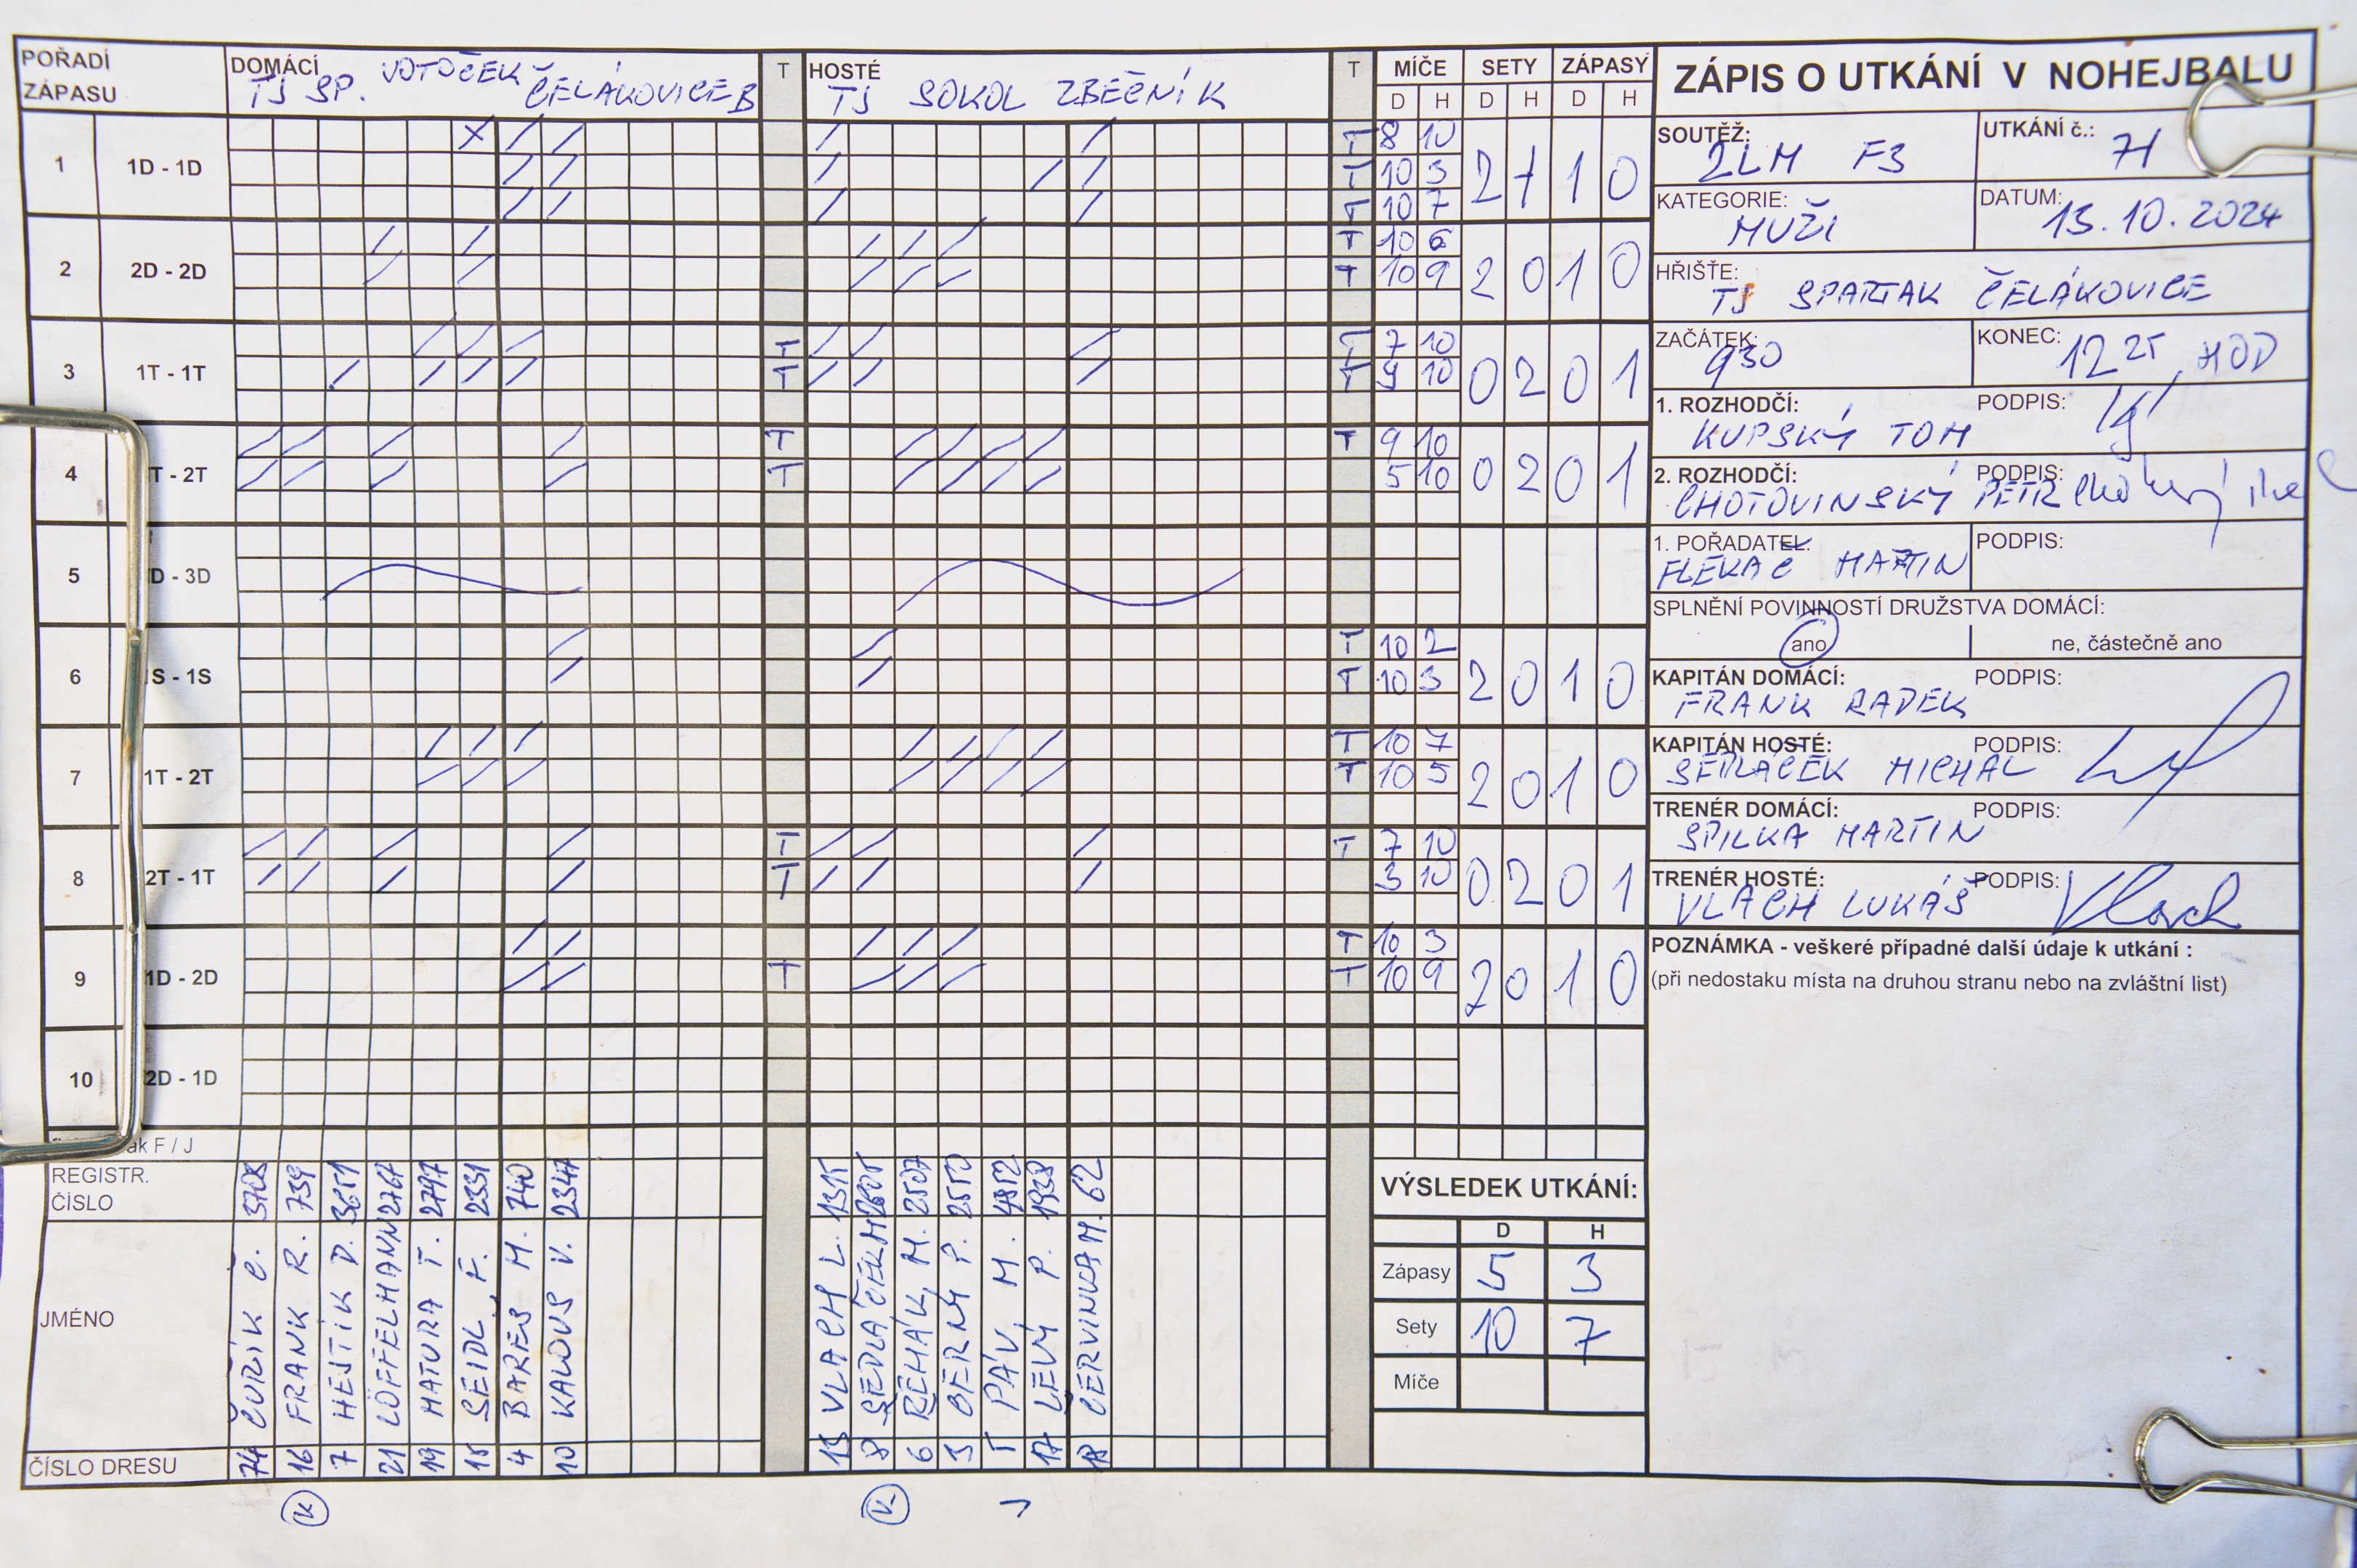 POŘADÍ ZÁPASU DOMÁCÍ TJ SP. VOTOČEK ČELÁKOVICE B T HOSTÉ TJ SOKOL ZBEČNÍK T MÍČE SETY ZÁPASY
D H D H D H
ZÁPIS O UTKÁNÍ V NOHEJBALU
1 1D - 1D T 8 10
T 10 5
T 10 7
2 1 1 0
2 2D - 2D T 10 6
T 10 9
2 0 1 0
3 1T - 1T T T 7 10
T T 9 10
0 2 0 1
4 T - 2T T T 9 10
T 5 10
0 2 0 1
5 D - 3D
6 S - 1S T 10 2
T 10 3
2 0 1 0
7 1T - 2T T 10 7
T 10 5
2 0 1 0
8 2T - 1T T T 7 10
T 3 10
0 2 0 1
9 1D - 2D T 10 3
T T 10 9
2 0 1 0
10 2D - 1D
ak F / J
REGISTR. ČÍSLO 3708 739 3651 2767 2797 2331 740 2347 1315 2605 2507 2550 4852 1938 62
JMÉNO ČUŘÍK Č. FRANK R. HEJTÍK D. LÖFFELMANN MATURA T. SEIDL F. BAREŠ M. KALOUS V. VLACH L. SEDLÁČEK M. ŘEHÁK M. BERNÝ P. PÁV M. LEVÝ P. ČERVINKA M.
ČÍSLO DRESU 74 16 7 21 19 15 4 10 13 8 6 3 1 17 18
K K
SOUTĚŽ: 2LM F3 UTKÁNÍ č.: 71
KATEGORIE: MUŽI DATUM: 13.10.2024
HŘIŠTĚ: TJ SPARTAK ČELÁKOVICE
ZAČÁTEK: 930 KONEC: 12 25 HOD
1. ROZHODČÍ: KUPSKÝ TOM PODPIS:
2. ROZHODČÍ: CHOTOVINSKÝ PETR PODPIS:
1. POŘADATEL: FLEKAČ MARTIN PODPIS:
SPLNĚNÍ POVINNOSTÍ DRUŽSTVA DOMÁCÍ:
ano ne, částečně ano
KAPITÁN DOMÁCÍ: FRANK RADEK PODPIS:
KAPITÁN HOSTÉ: SEDLÁČEK MICHAL PODPIS:
TRENÉR DOMÁCÍ: SPILKA MARTIN PODPIS:
TRENÉR HOSTÉ: VLACH LUKÁŠ PODPIS: Vlach
POZNÁMKA - veškeré případné další údaje k utkání :
(při nedostaku místa na druhou stranu nebo na zvláštní list)
VÝSLEDEK UTKÁNÍ:
D H
Zápasy 5 3
Sety 10 7
Míče